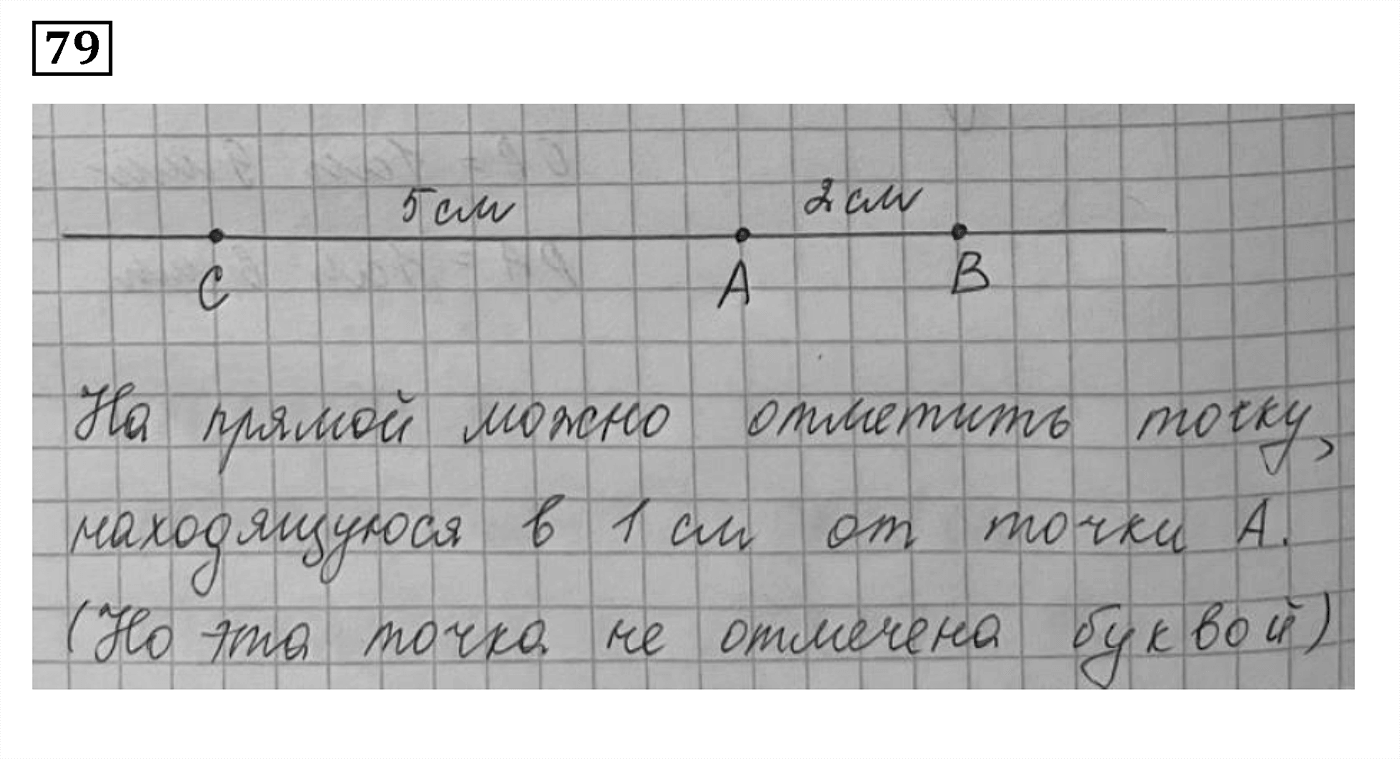 79
5 см 2 см
С А В
На прямой можно отметить точку,
находящуюся в 1 см от точки А.
(Но эта точка не отмечена буквой)